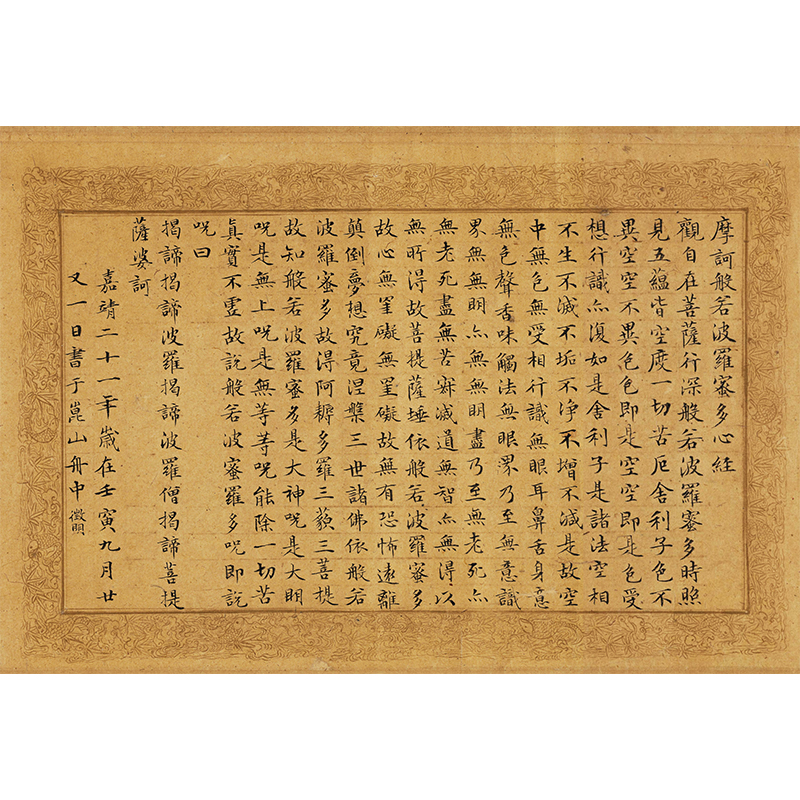 摩訶般若波羅蜜多心經
觀自在菩薩行深般若波羅蜜多時照
見五蘊皆空度一切苦厄舍利子色不
異空空不異色色即是空空即是色受
想行識亦復如是舍利子是諸法空相
不生不滅不垢不淨不增不減是故空
中無色無受想行識無眼耳鼻舌身意
無色聲香味觸法無眼界乃至無意識
界無無明亦無無明盡乃至無老死亦
無老死盡無苦寂滅道無智亦無得以
無所得故菩提薩埵依般若波羅蜜多
故心無罣礙無罣礙故無有恐怖遠離
顛倒夢想究竟涅槃三世諸佛依般若
波羅蜜多故得阿耨多羅三藐三菩提
故知般若波羅蜜多是大神呪是大明
呪是無上呪是無等等呪能除一切苦
真實不虛故說般若波蜜羅多呪即說
呪曰
揭諦揭諦波羅揭諦波羅僧揭諦菩提
薩婆訶
嘉靖二十一年歲在壬寅九月廿
又一日書于崑山舟中徵明